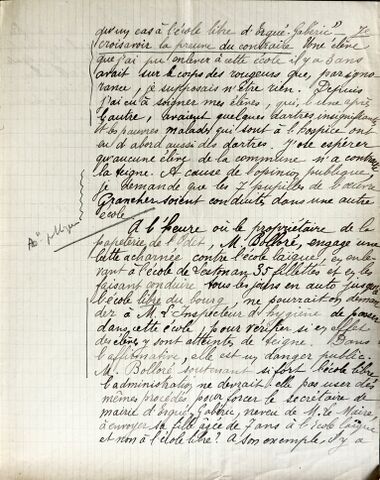 qu'un cas à l'école libre d'Ergué-Gaberic" Je
crois avoir la preuve du contraire Une élève
que j'ai pu enlever à cette école il y a 3 ans
avait sur le corps des rougeurs que, par igno
rance, je supposais n'être rien. Depuis
j'ai eu à soigner mes élèves, qui, l'une après
l'autre, avaient quelques dartres insignifiants
et les pauvres malades qui sont à l'hospice ont
eu d'abord aussi des dartres. J'ose espérer
qu'aucune élève de la commune n'a contracté
la teigne. A cause de l'opinion publique
je demande que les 7 pupilles de l'œuvre
Grancher soient conduites dans une autre
école
A l'heure où le propriétaire de la
papeterie de l'Odet, M. Bolloré, engage une
lutte acharnée contre l'école laïque, en enle-
vant à l'école de Lestonan 35 fillettes et en les
faisant conduire tous les jours en auto jusqu'à
l'école libre du bourg, ne pourrait-on deman
der à M. l'Inspecteur d'hygiène de passer
dans cette école pour vérifier si en effet
des élèves y sont atteintes de teigne. Dans
l'affirmative, elle est un danger public.
M. Bolloré soutenant si fort l'école libre
l'administration ne devrait-elle pas user des
mêmes procédés pour forcer le secrétaire de
mairie d'Ergué-Gabéric, neveu de M. le Maire,
à envoyer sa fille âgée de 7 ans à l'école laïque
et non à l'école libre? A son exemple il y a